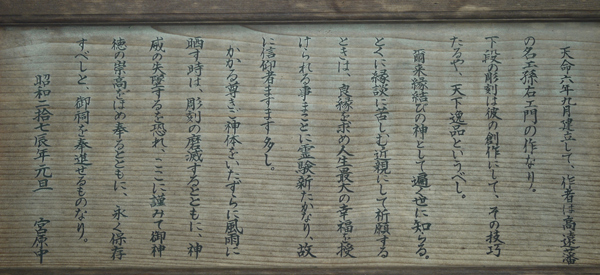 天命六年九月建立して、作者は高遠藩
の名工孫右エ門の作なり。
下段の彫刻は彼の創作にして、その技巧
たるや、天下逸品というべし。
爾来縁結びの神として遍く世に知らる。
とくに縁談に苦しむ近親にして祈願する
ときは、良縁を求め人生最大の幸福を授
けられる事まことに霊験新たかなり、故
に信仰者ますます多し。
かかる尊きご神体をいたずらに風雨に
晒す時は、彫刻の磨滅するとともに、神
威の失墜するを恐れ、ここに謹みて御神
徳の崇高をほめ奉るとともに、永く保存
すべしと、御祠を奉進せるものなり。
昭和二拾七辰年元旦　宮原中